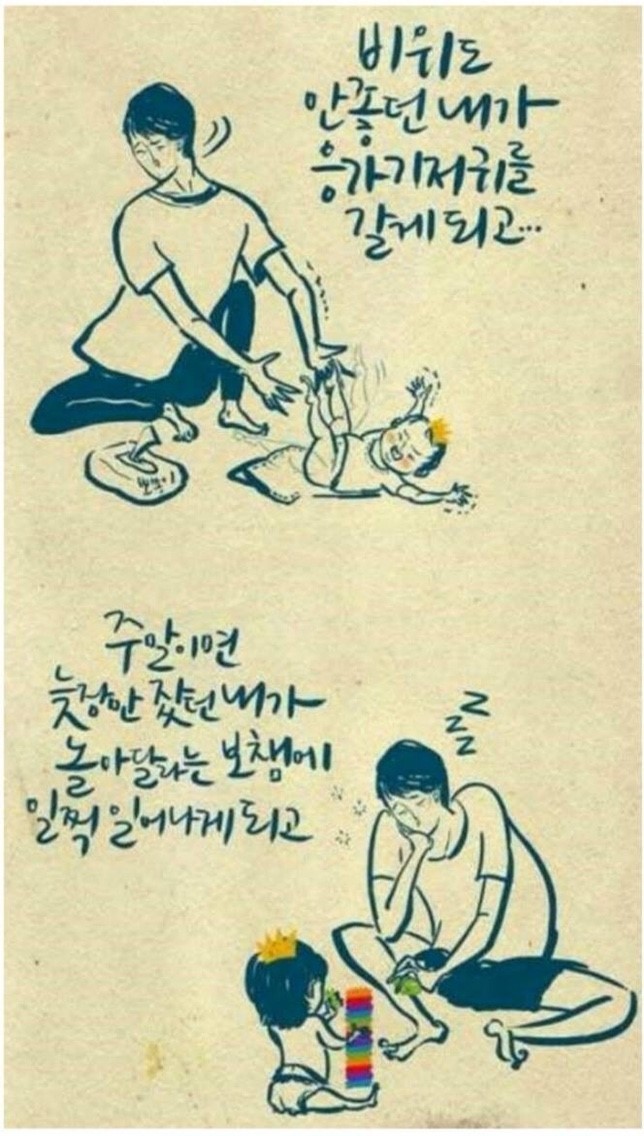 비위도
안좋던 내가
응가기저귀를
갈게 되고...
뽀뽀이
주말이면
늦장만 잤던 내가
놀아달라는 보챔에
일찍 일어나게 되고